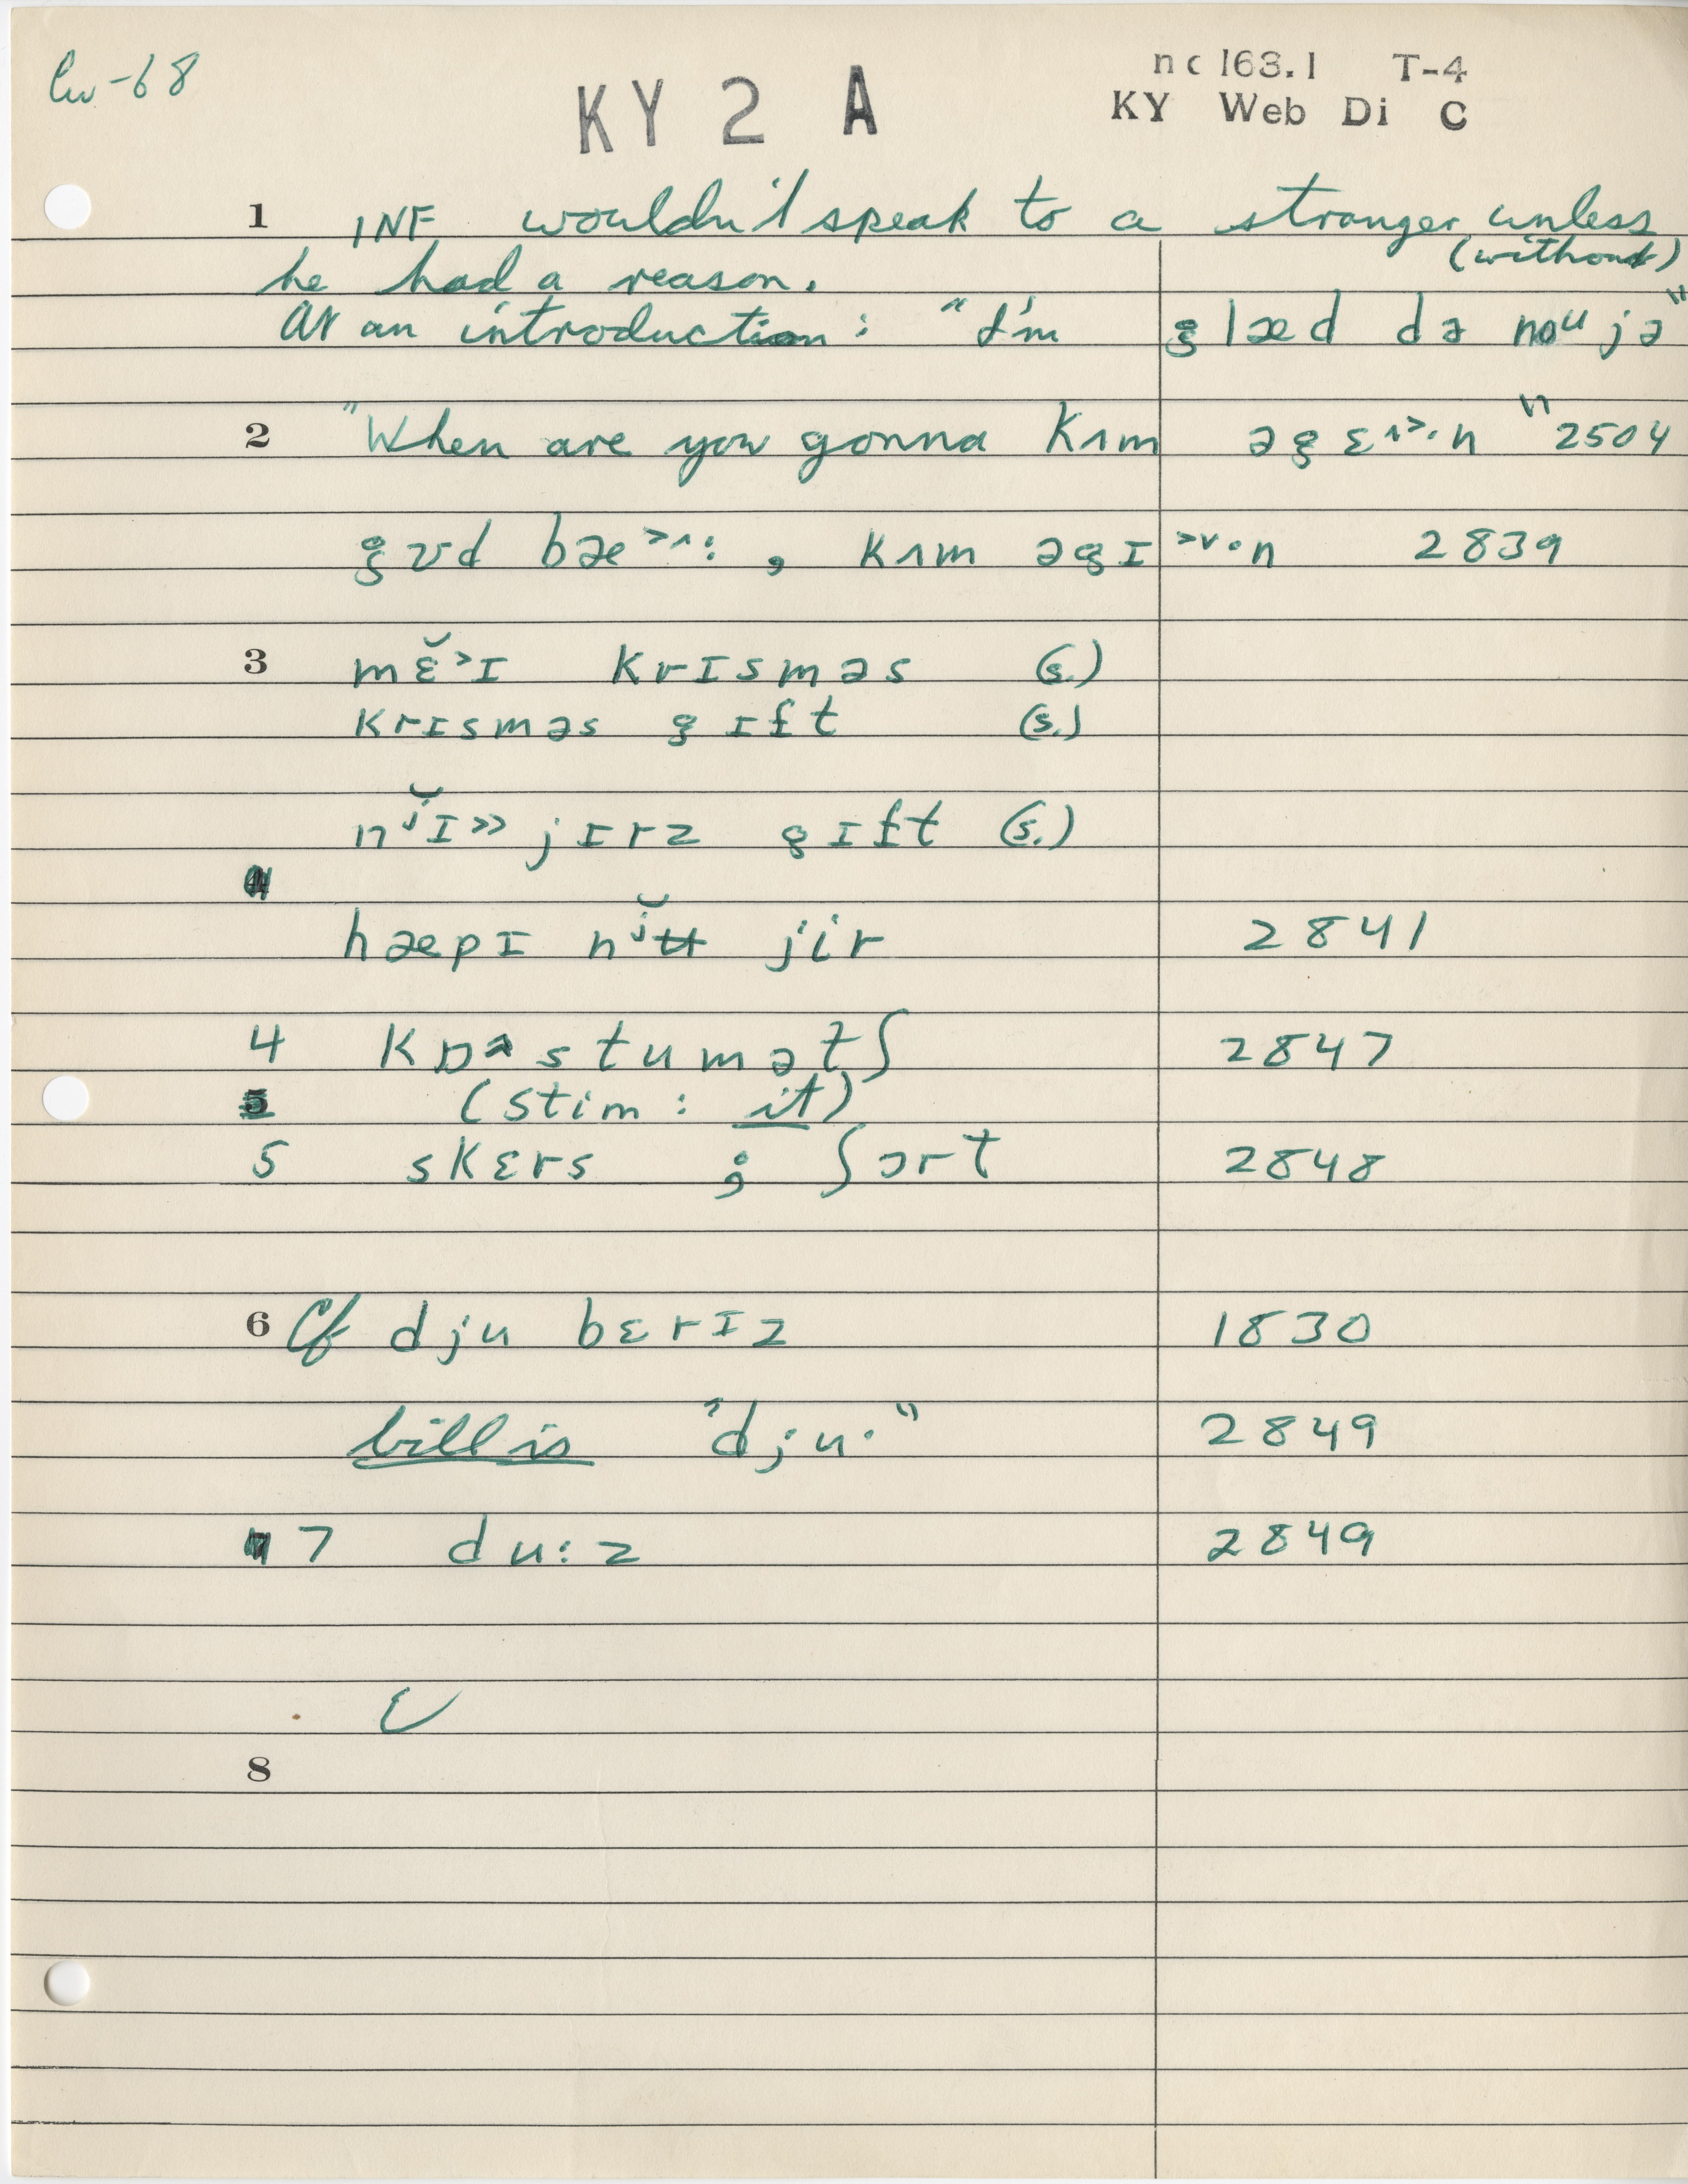 KY 2 A
nc 163.1 T-4
KY Web Di C
1 INF wouldn't speak to a stranger unless
(without)
he had a reason.
At an introduction: "I'm glæd də noᵘ jə"
2 "When are you gonna kʌm əgɛ^>·n" 2504
gʊd bæ>^: , kʌm əgɪ>v·n 2839
3 mɛ̆>ɪ krɪsməs (s.)
krɪsməs gɪft (s.)
nʲɪ̆>> jɪrz gɪft (s.)
4
hæpɪ nʲʉ̆ jir 2841
4 kɒ^stumətʃ 2847
5 (stim: it)
5 skɛrs ; ʃɔrt 2848
6 Cf dju bɛrɪz 1830
bill is "dju·" 2849
7 7 du:z 2849
8